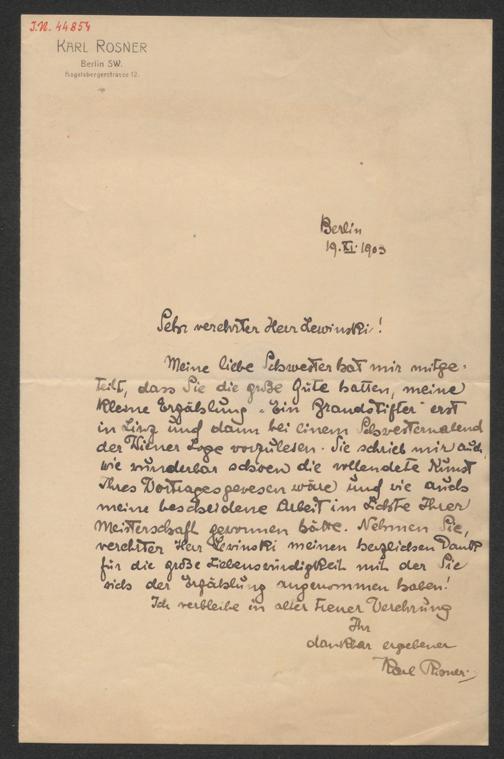 J.N. 44854
KARL ROSNER
Berlin SW.
Hagelsbergerstrasse 12.
Berlin
19. XI. 1903
Sehr verehrter Herr Lewinski!
Meine liebe Schwester hat mir mitge-
teilt, dass Sie die große Güte hatten, meine
kleine Erzählung "Ein Brandstifter" erst
in Linz und dann bei einem Schwesternabend
der Wiener Loge vorzulesen. Sie schrieb mir auch,
wie wunderbar schoen die vollendete Kunst
Ihres Vortrages gewesen wäre und wie auch
meine bescheidene Arbeit im Lichte Ihrer
Meisterschaft gewonnen hätte. Nehmen Sie,
verehrter Herr Lewinski meinen herzlichsten Dank
für die große Liebenswürdigkeit mit der Sie
sich der Erzählung angenommen haben!
Ich verbleibe in alter treuer Verehrung
Ihr
dankbar ergebener
Karl Rosner.